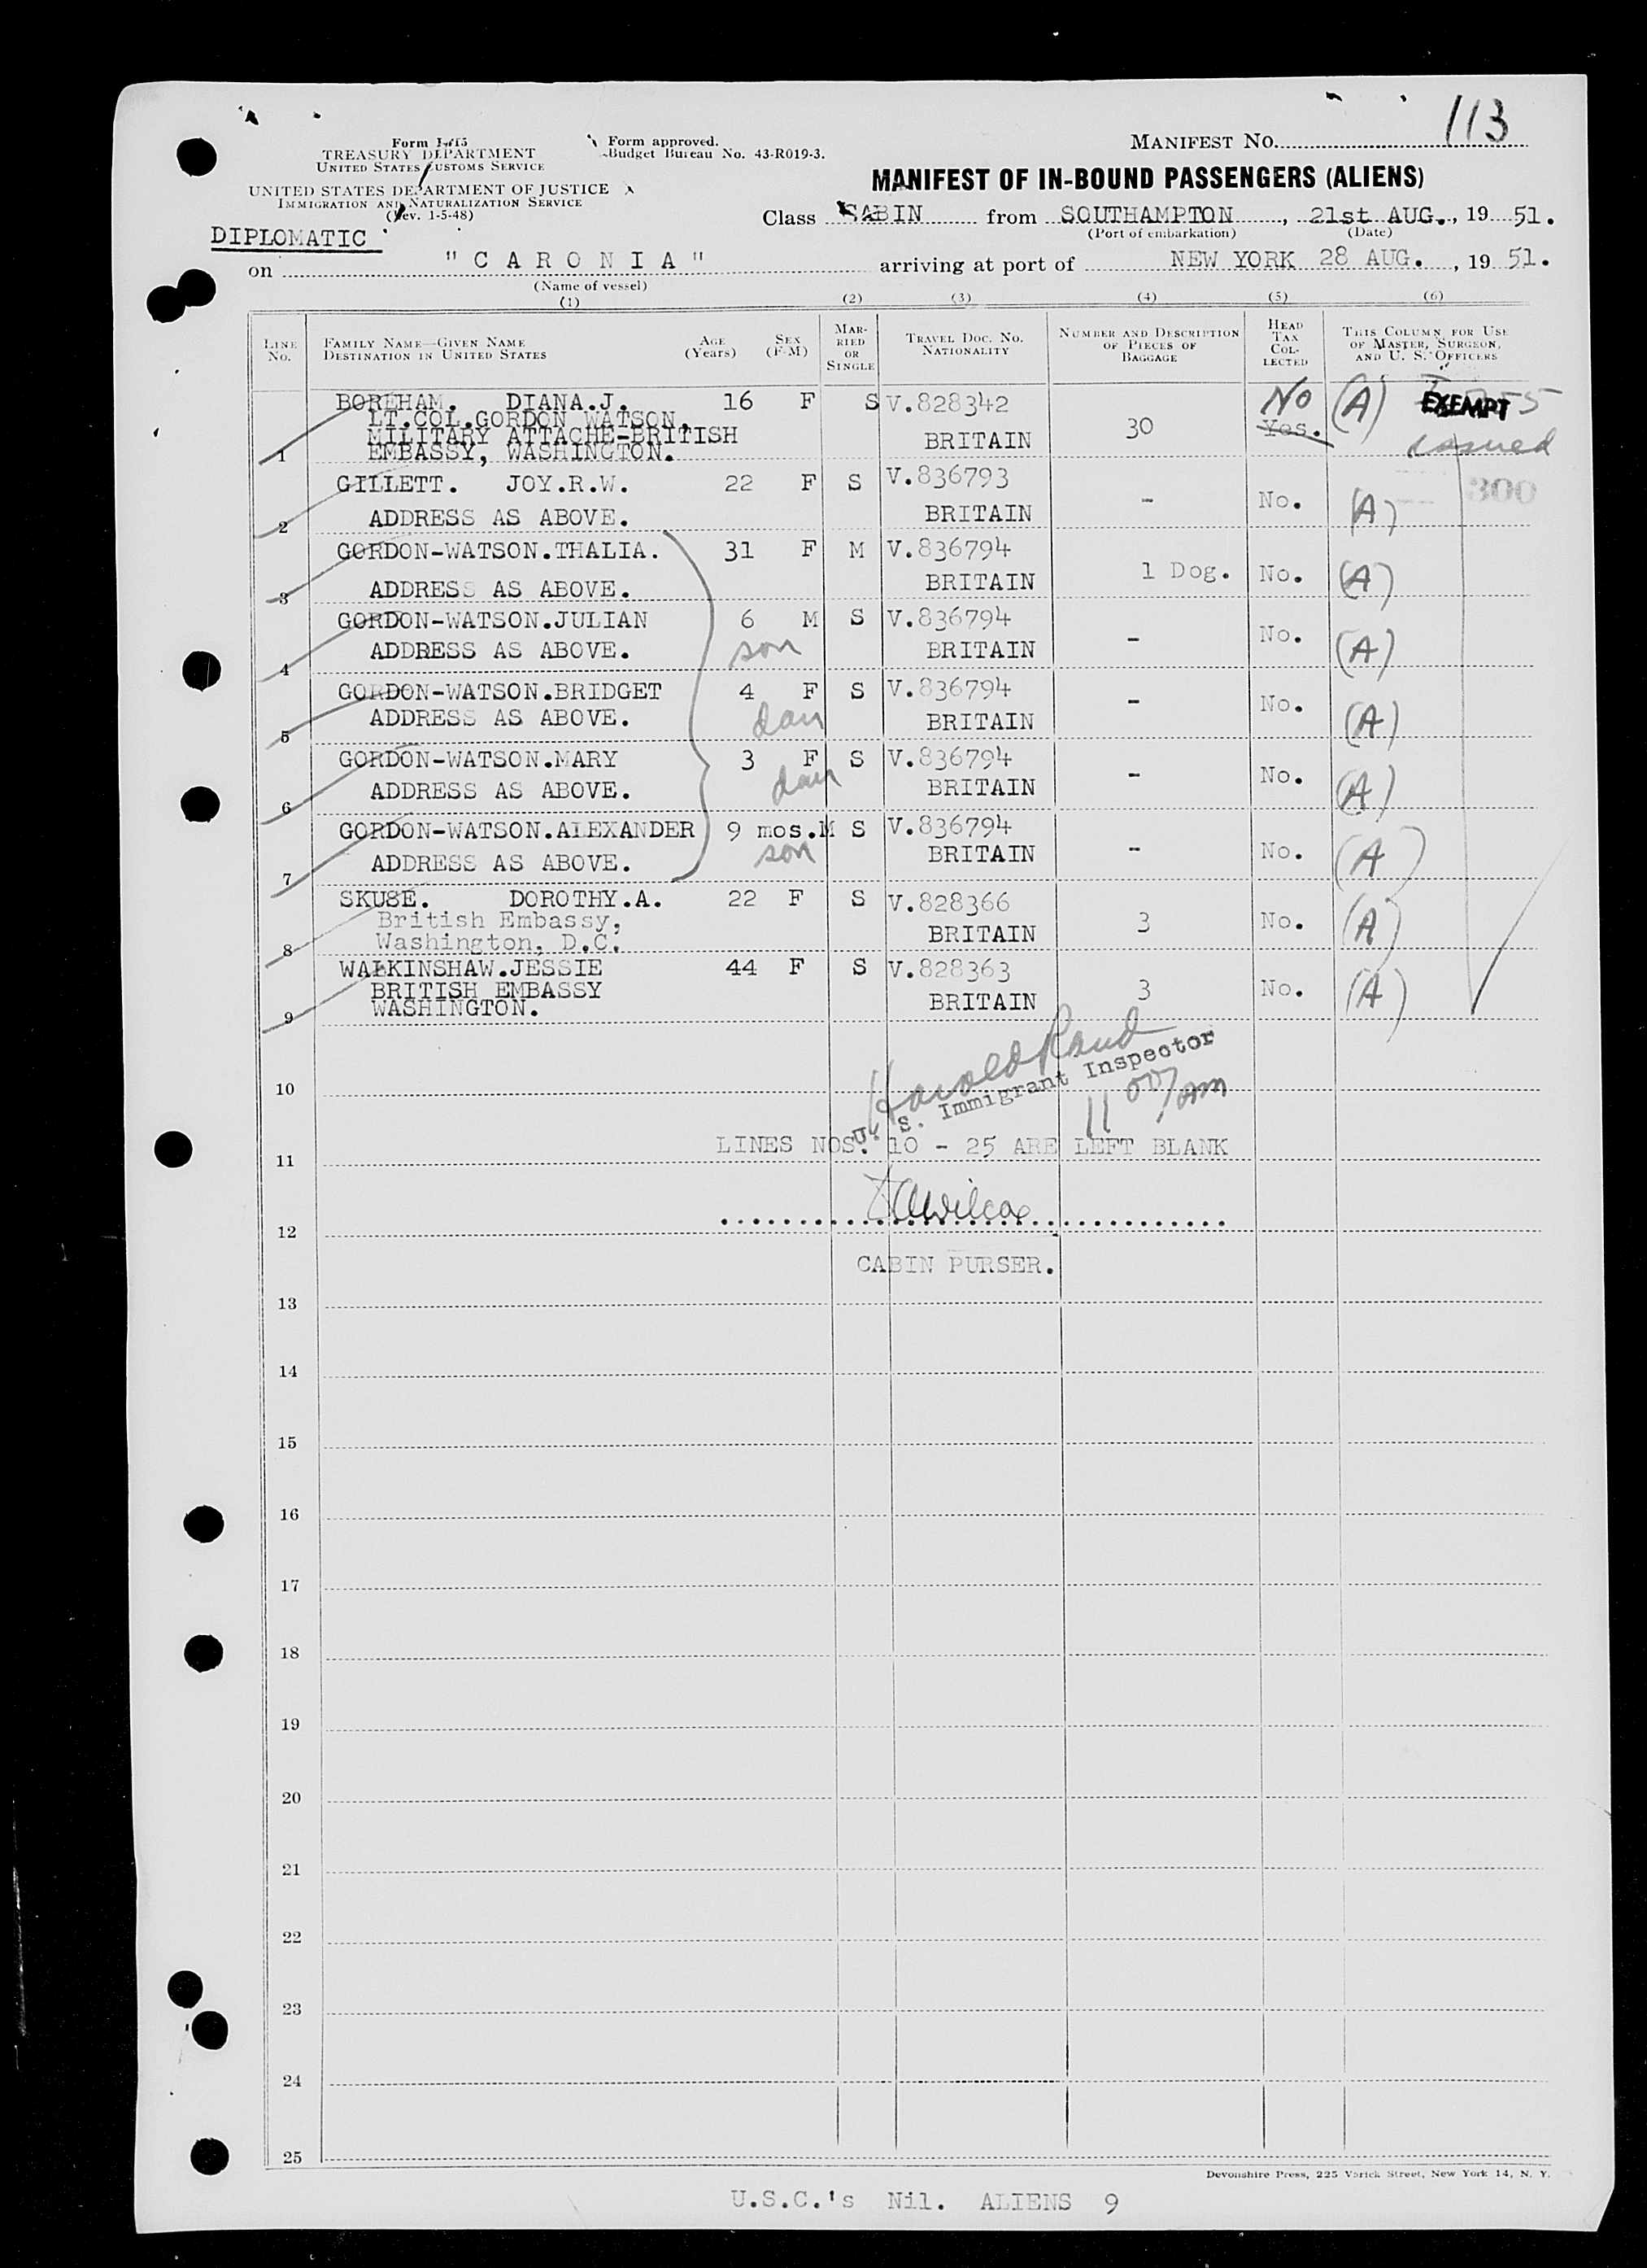 113
Form I-415
TREASURY DEPARTMENT
UNITED STATES CUSTOMS SERVICE
UNITED STATES DEPARTMENT OF JUSTICE
IMMIGRATION AND NATURALIZATION SERVICE
(Rev. 1-5-48)
Form approved.
Budget Bureau No. 43-R019-3.
MANIFEST NO.
MANIFEST OF IN-BOUND PASSENGERS (ALIENS)
Class CABIN from SOUTHAMPTON, 21st AUG., 19 51.
(Port of embarkation) (Date)
DIPLOMATIC
on "CARONIA" arriving at port of NEW YORK 28 AUG., 19 51.
(Name of vessel)
(1) (2) (3) (4) (5) (6)
LINE NO. FAMILY NAME—GIVEN NAME DESTINATION IN UNITED STATES AGE (Years) SEX (F-M) MARRIED OR SINGLE TRAVEL DOC. NO. NATIONALITY NUMBER AND DESCRIPTION OF PIECES OF BAGGAGE HEAD TAX COLLECTED THIS COLUMN FOR USE OF MASTER, SURGEON, AND U. S. OFFICERS
BOREHAM. DIANA.J. 16 F S V.828342 No (A) EXEMPT
LT.COL.GORDON WATSON,
MILITARY ATTACHE-BRITISH BRITAIN 30 Yes. issued
1 EMBASSY, WASHINGTON.
GILLETT. JOY.R.W. 22 F S V.836793 - No. (A) 300
2 ADDRESS AS ABOVE. BRITAIN
GORDON-WATSON.THALIA. 31 F M V.836794
3 ADDRESS AS ABOVE. BRITAIN 1 Dog. No. (A)
GORDON-WATSON.JULIAN 6 M S V.836794 - No. (A)
4 ADDRESS AS ABOVE. son BRITAIN
GORDON-WATSON.BRIDGET 4 F S V.836794 - No. (A)
5 ADDRESS AS ABOVE. dau BRITAIN
GORDON-WATSON.MARY 3 F S V.836794 - No. (A)
6 ADDRESS AS ABOVE. dau BRITAIN
GORDON-WATSON.ALEXANDER 9 mos.M S V.836794 - No. (A)
7 ADDRESS AS ABOVE. son BRITAIN
SKUSE. DOROTHY.A. 22 F S V.828366 3 No. (A)
British Embassy, BRITAIN
8 Washington, D.C.
WALKINSHAW.JESSIE 44 F S V.828363 3 No. (A)
BRITISH EMBASSY BRITAIN
9 WASHINGTON.
Harold Rand
U. S. Immigrant Inspector
10
11 00/am
LINES NOS. 10 - 25 ARE LEFT BLANK
11
Wilcox
12
CABIN PURSER.
13
14
15
16
17
18
19
20
21
22
23
24
25
Devonshire Press, 225 Varick Street, New York 14, N. Y.
U.S.C.'s Nil. ALIENS 9